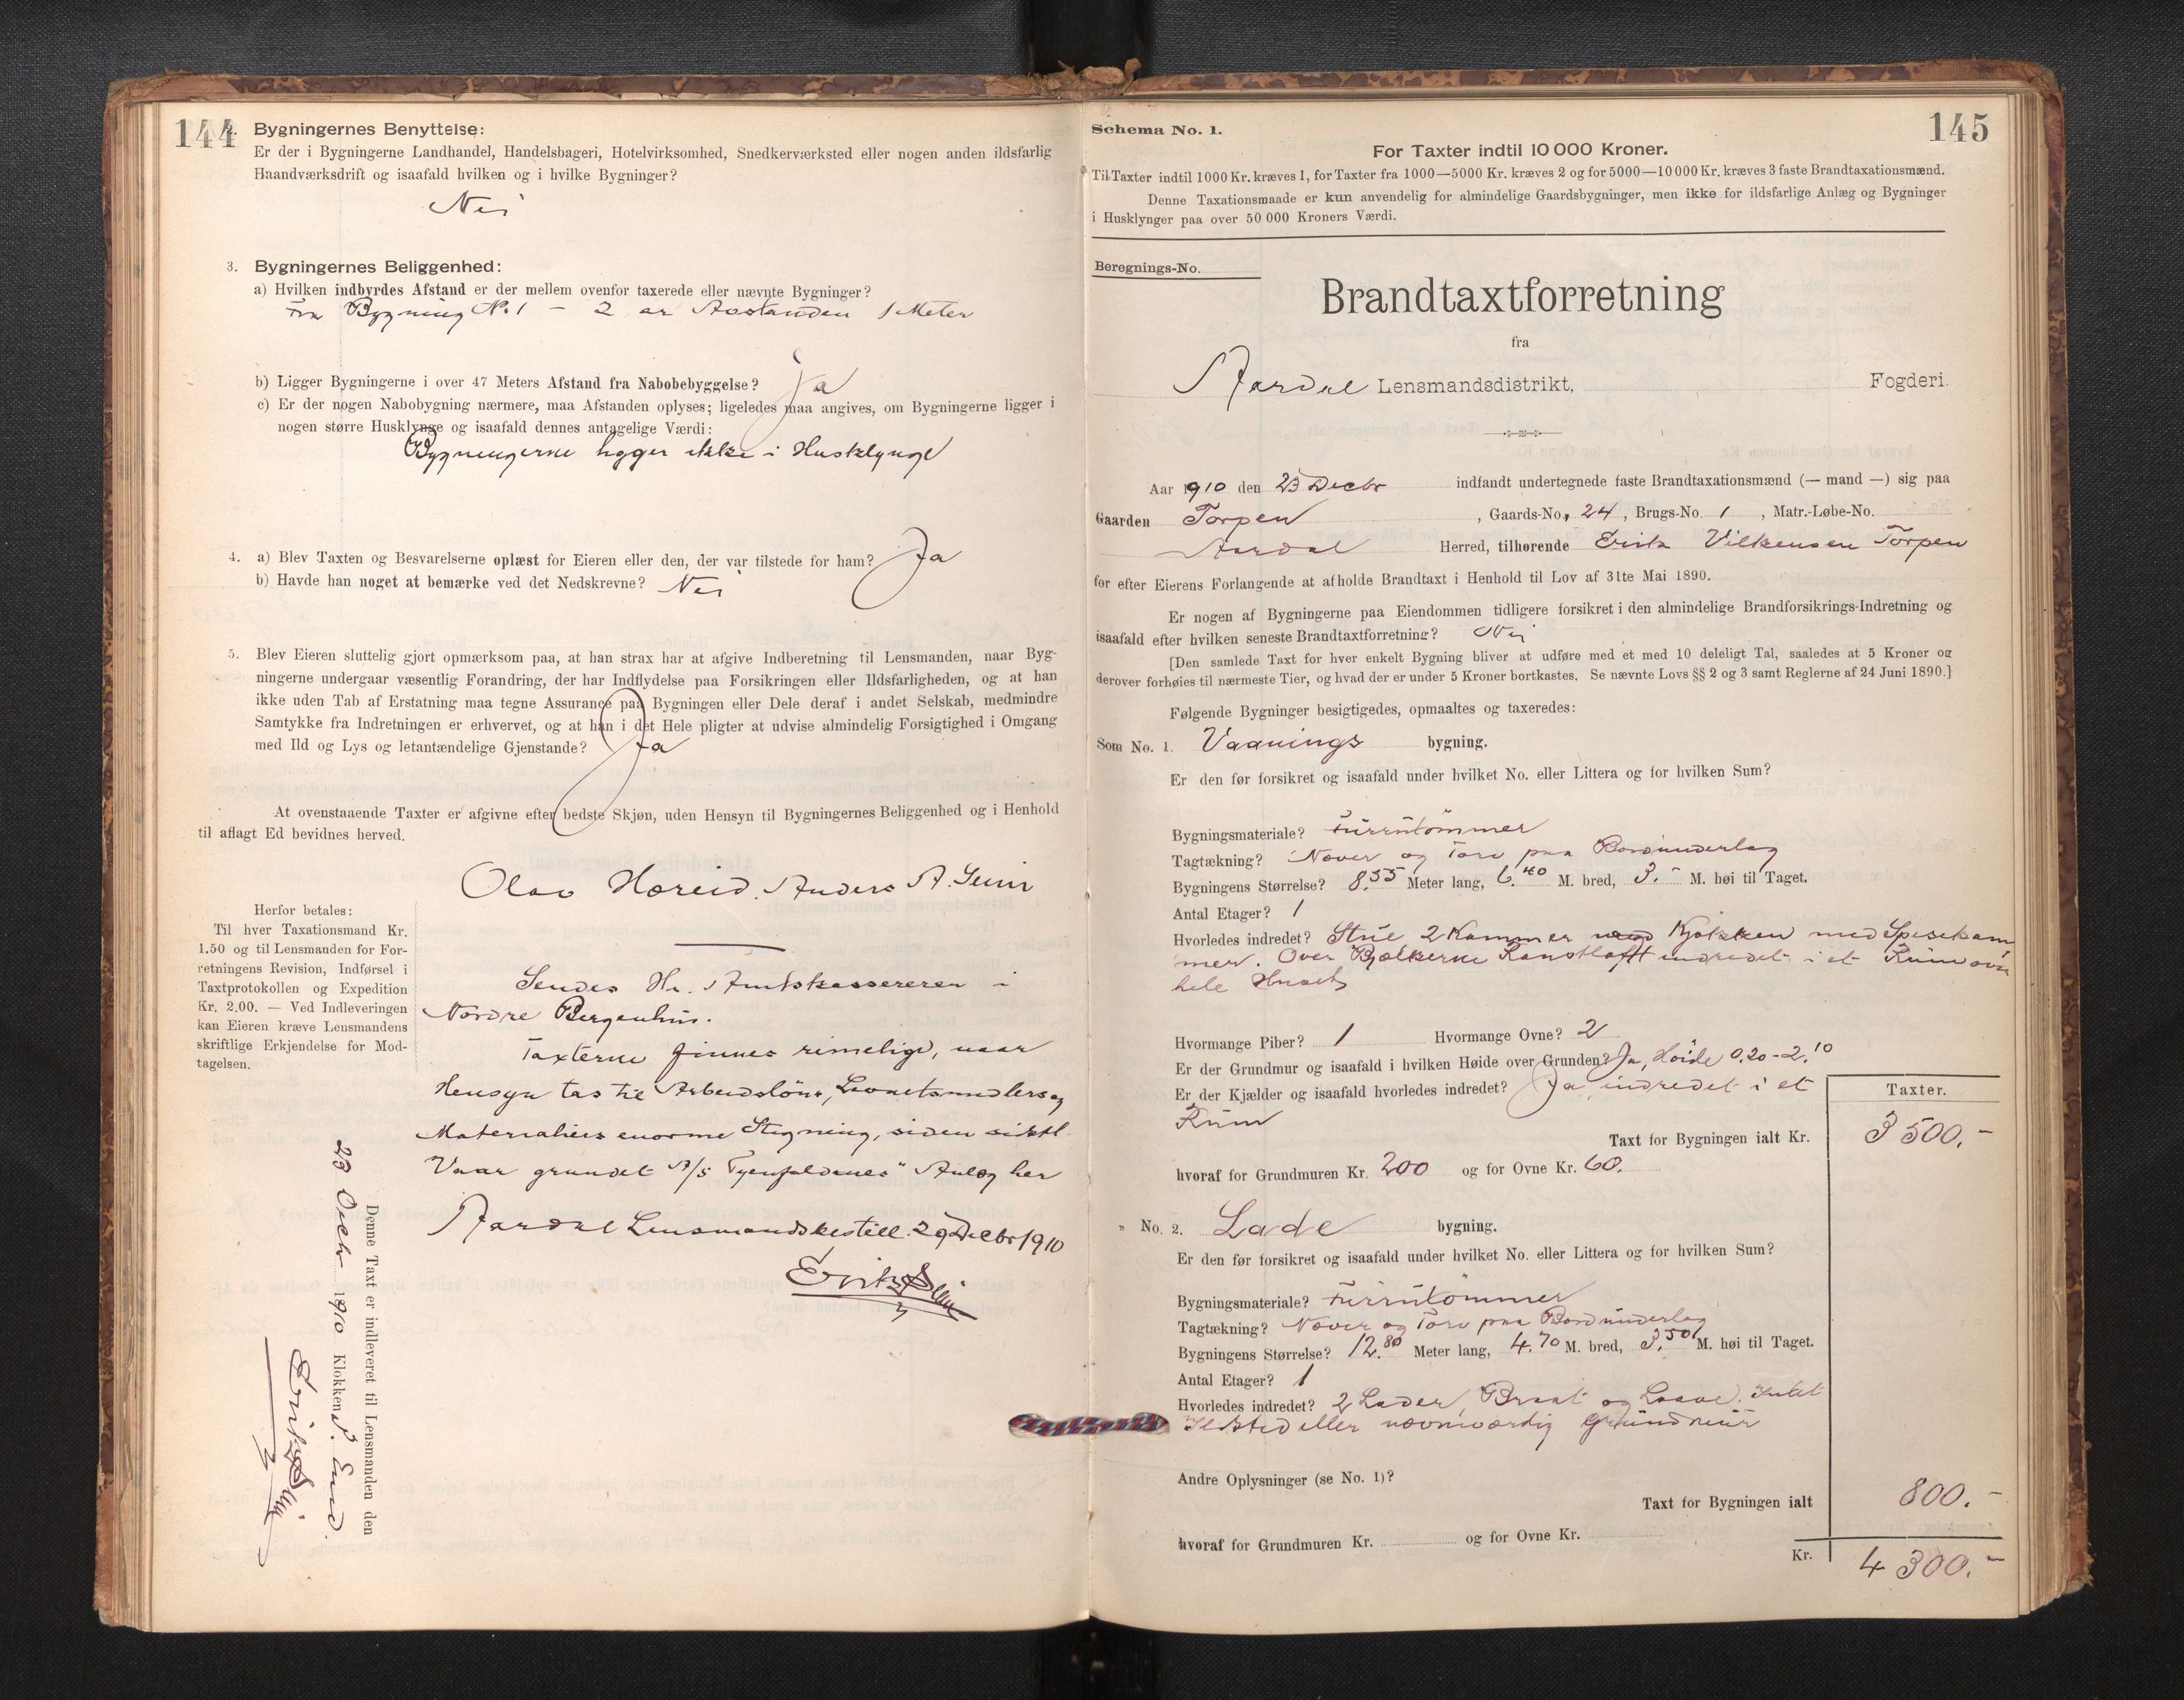 144
2. Bygningernes Benyttelse:
Er der i Bygningerne Landhandel, Handelsbageri, Hotelvirksomhed, Snedkerværksted eller nogen anden ildsfarlig
Haandværksdrift og isaafald hvilken og i hvilke Bygninger?
Nei
3. Bygningernes Beliggenhed:
a) Hvilken indbyrdes Afstand er der mellem ovenfor taxerede eller nævnte Bygninger?
Fra Bygning No. 1 – 2 er Avstanden 1 Meter
b) Ligger Bygningerne i over 47 Meters Afstand fra Nabobebyggelse? Ja
c) Er der nogen Nabobygning nærmere, maa Afstanden oplyses; ligeledes maa angives, om Bygningerne ligger i
nogen større Husklynge og isaafald dennes antagelige Værdi:
Bygningerne ligger ikke i Husklynge
4. a) Blev Taxten og Besvarelserne oplæst for Eieren eller den, der var tilstede for ham? Ja
b) Havde han noget at bemærke ved det Nedskrevne? Nei
5. Blev Eieren sluttelig gjort opmærksom paa, at han strax har at afgive Indberetning til Lensmanden, naar Byg-
ningerne undergaar væsentlig Forandring, der har Indflydelse paa Forsikringen eller Ildsfarligheden, og at han
ikke uden Tab af Erstatning maa tegne Assurance paa Bygningen eller Dele deraf i andet Selskab, medmindre
Samtykke fra Indretningen er erhvervet, og at han i det Hele pligter at udvise almindelig Forsigtighed i Omgang
med Ild og Lys og letantændelige Gjenstande? Ja
At ovenstaaende Taxter er afgivne efter bedste Skjøn, uden Hensyn til Bygningernes Beliggenhed og i Henhold
til aflagt Ed bevidnes herved.
Olav Hæreid. Anders A. Seim
Herfor betales:
Til hver Taxationsmand Kr.
1.50 og til Lensmanden for For-
retningens Revision, Indførsel i
Taxtprotokollen og Expedition
Kr. 2.00. — Ved Indleveringen
kan Eieren kræve Lensmandens
skriftlige Erkjendelse for Mod-
tagelsen.
Sendes Hr. Amtskassereren i
Nordre Bergenhus.
Taxterne finnes rimelige, naar
Hensyn tas til Arbeidsløns, Levnetsmidlers og
Materialiers enorme Stigning, siden sidstl.
Vaar grundet A/S Tyenfaldenes" Anlæg her
Aardal Lensmandsbestill. 29 Decbr 1910
Denne Taxt er indleveret til Lensmanden den
23 Decbr 1910 Klokken
Schema No. 1.
145
For Taxter indtil 10 000 Kroner.
Til Taxter indtil 1000 Kr. kræves 1, for Taxter fra 1000—5000 Kr. kræves 2 og for 5000—10 000 Kr. kræves 3 faste Brandtaxationsmænd.
Denne Taxationsmaade er kun anvendelig for almindelige Gaardsbygninger, men ikke for ildsfarlige Anlæg og Bygninger
i Husklynger paa over 50 000 Kroners Værdi.
Beregnings-No.
Brandtaxtforretning
fra
Aardal Lensmandsdistrikt, Fogderi.
Aar 1910 den 23 Decbr indfandt undertegnede faste Brandtaxationsmænd (— mand —) sig paa
Gaarden Torpen, Gaards-No. 24, Brugs-No. 1, Matr.-Løbe-No.
Aardal Herred, tilhørende Erik Vilkensen Torpen
for efter Eierens Forlangende at afholde Brandtaxt i Henhold til Lov af 31te Mai 1890.
Er nogen af Bygningerne paa Eiendommen tidligere forsikret i den almindelige Brandforsikrings-Indretning og
isaafald efter hvilken seneste Brandtaxtforretning? Nei
[Den samlede Taxt for hver enkelt Bygning bliver at udføre med et med 10 deleligt Tal, saaledes at 5 Kroner og
derover forhøies til nærmeste Tier, og hvad der er under 5 Kroner bortkastes. Se nævnte Lovs §§ 2 og 3 samt Reglerne af 24 Juni 1890.]
Følgende Bygninger besigtigedes, opmaaltes og taxeredes:
Som No. 1. Vaanings bygning.
Er den før forsikret og isaafald under hvilket No. eller Littera og for hvilken Sum?
Bygningsmateriale? Furrutømmer
Tagtækning? Næver og Torv paa Bordunderlag
Bygningens Størrelse? 8.55 Meter lang, 6.40 M. bred, 3.- M. høi til Taget.
Antal Etager? 1
Hvorledes indredet? Stue 2 Kammer med Kjøkken med Spisekam
mer. Over Bjælkerne Ranstloft indredet i et Rum over
hele Huset
Hvormange Piber? 1 Hvormange Ovne? 2
Er der Grundmur og isaafald i hvilken Høide over Grunden? Ja, Høide 0,20 - 2.10
Er der Kjælder og isaafald hvorledes indredet? Ja indredet i et
Rum
Taxter.
Taxt for Bygningen ialt Kr. 3 500.-
hvoraf for Grundmuren Kr. 200 og for Ovne Kr. 60.
" No. 2. Lade bygning.
Er den før forsikret og isaafald under hvilket No. eller Littera og for hvilken Sum?
Bygningsmateriale? Furrutømmer
Tagtækning? Næver og Torv paa Bordunderlag
Bygningens Størrelse? 12.80 Meter lang, 4.70 M. bred, 3.50 M. høi til Taget.
Antal Etager? 1
Hvorledes indredet? 2 Lader, Braat og Laave. Intet
Ildsted eller nævneværdig Grundmur
Andre Oplysninger (se No. 1)?
Taxt for Bygningen ialt 800.-
hvoraf for Grundmuren Kr. og for Ovne Kr.
Kr. 4 300.-